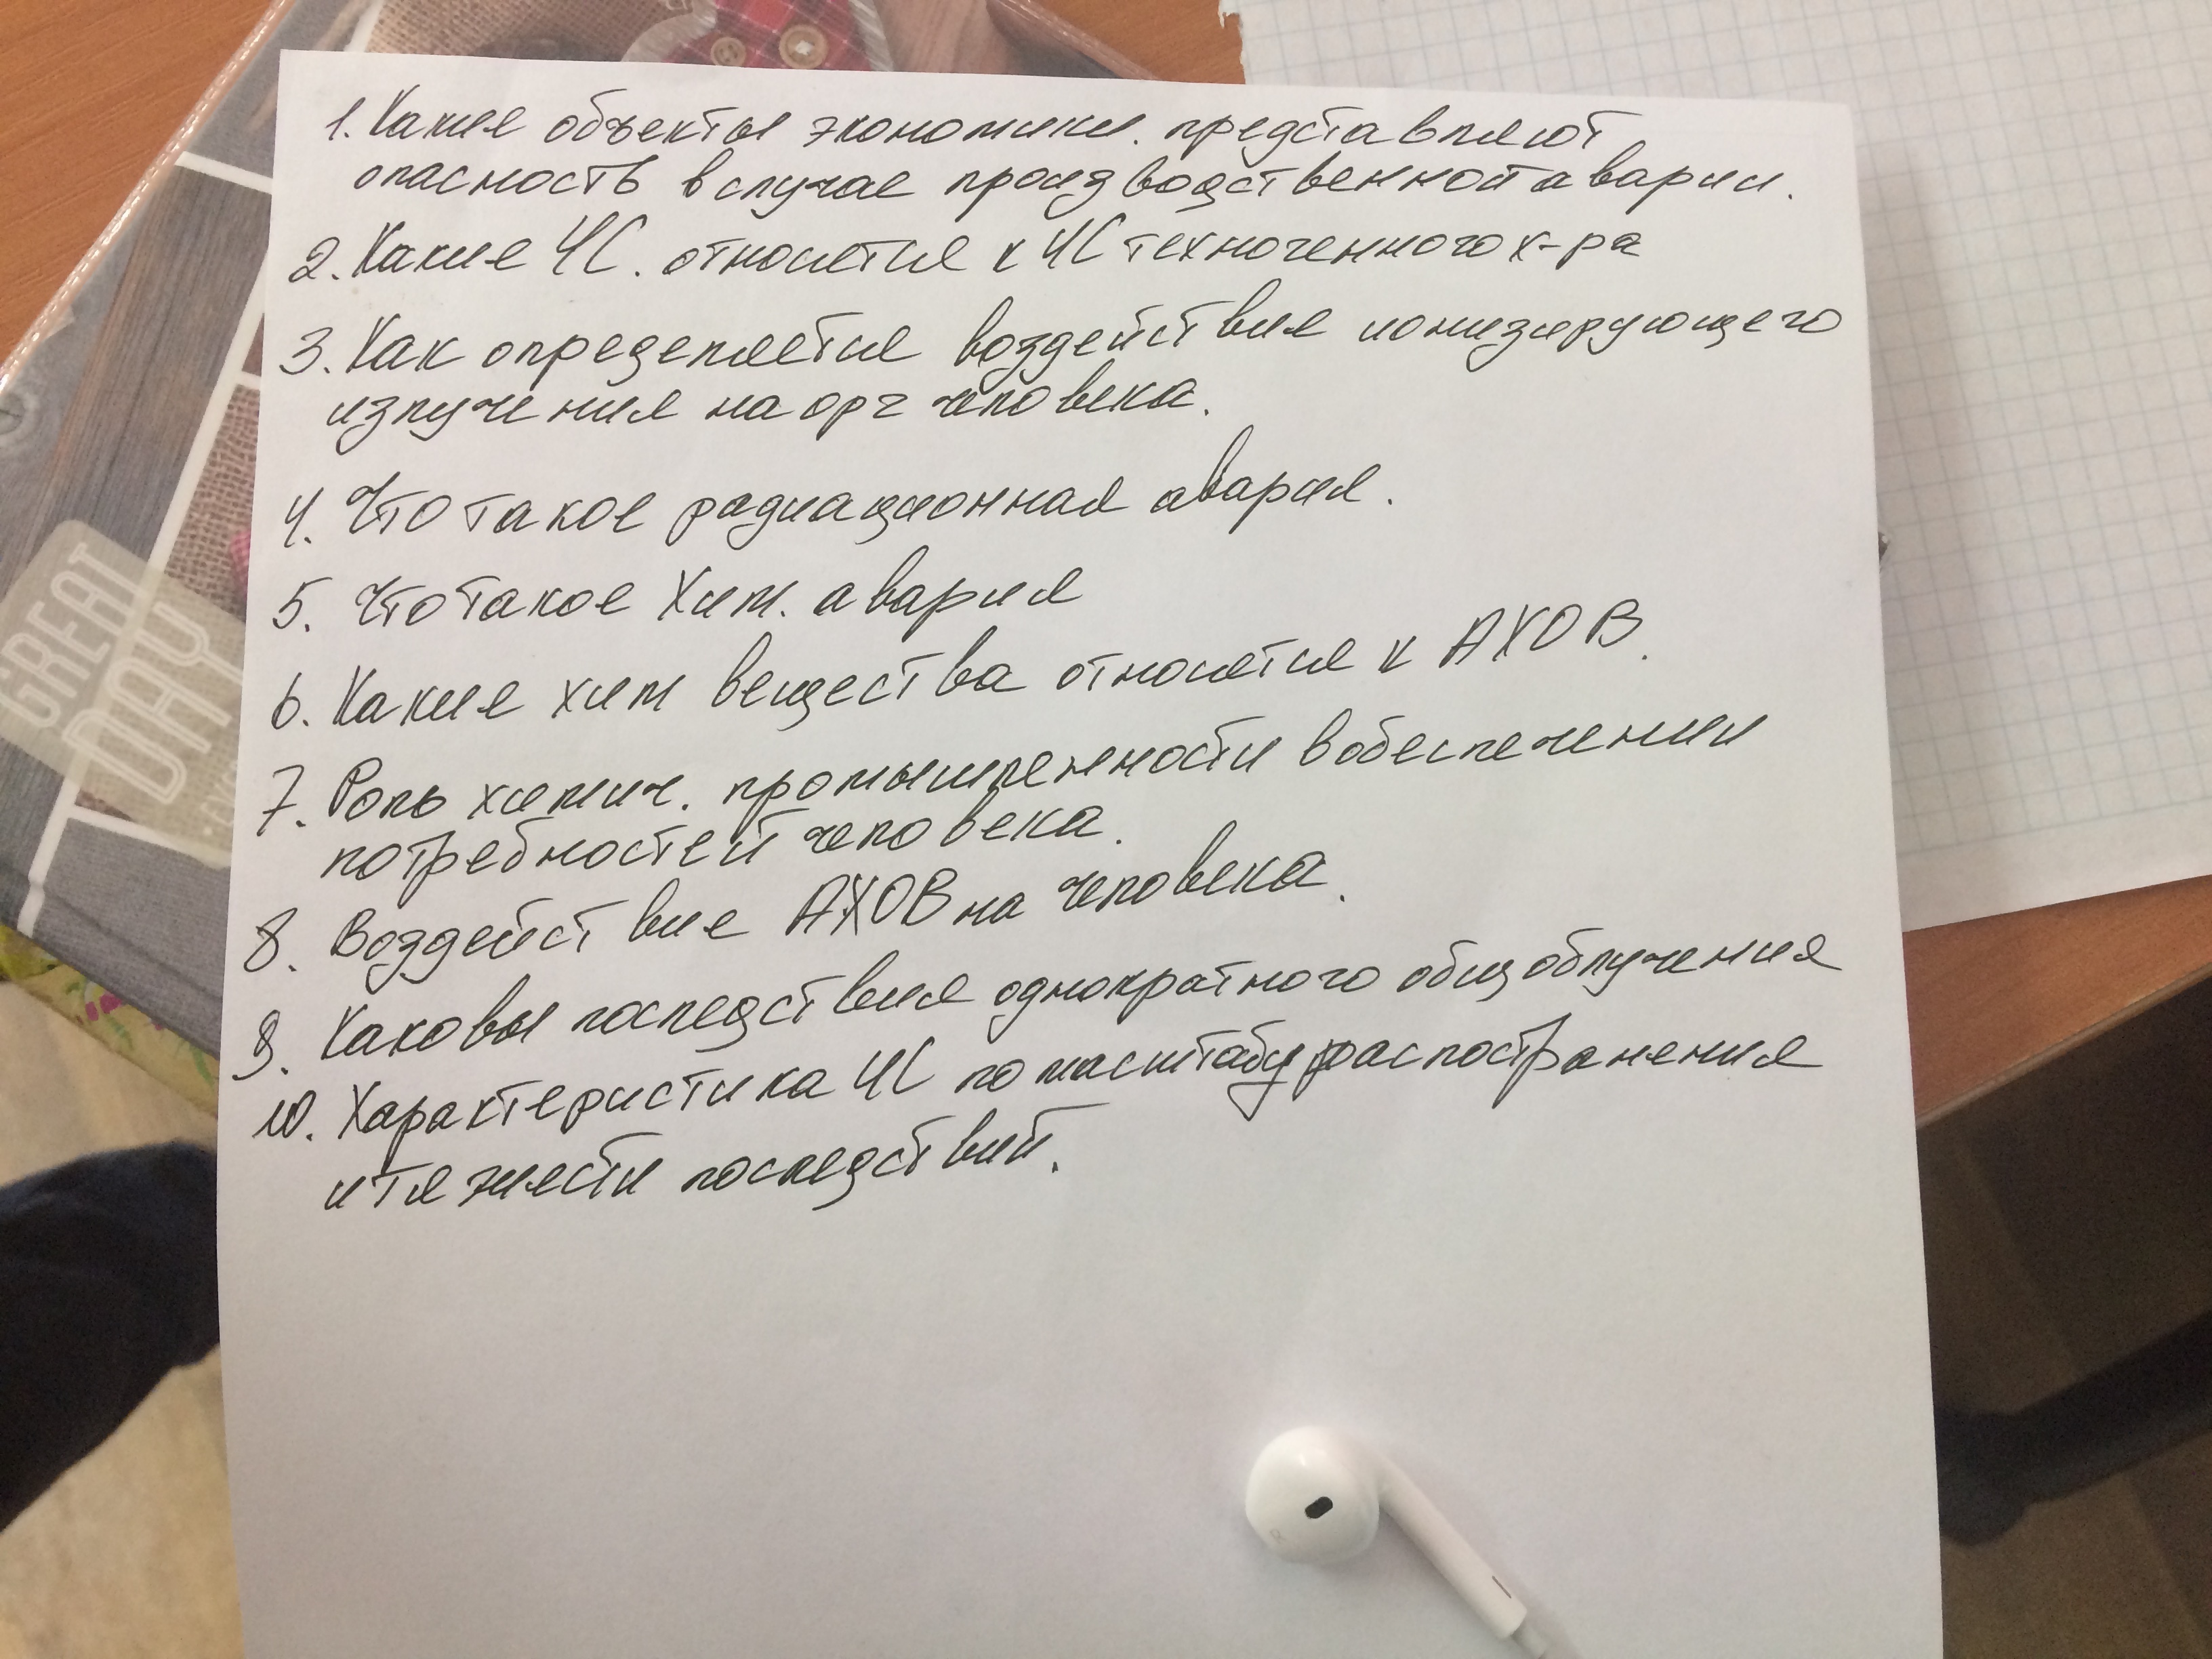 GREAT
DAY
1. Какие объекты экономики. представляют
опасность в случае производственной аварии.
2. Какие ЧС. относятся к ЧС техногенного х-ра
3. Как определяется воздействия ионизирующего
излучения на орг человека.
4. Что такое радиационная авария.
5. Что такое Хим. авария
6. Какие хим вещества относятся к АХОВ.
7. Роль химич. промышленности в обеспечении
потребностей человека.
8. Воздействие АХОВ на человека.
9. Каковы последствия однократного общ облучения
10. Характеристика ЧС по масштабу распостранения
и тяжести последствий.